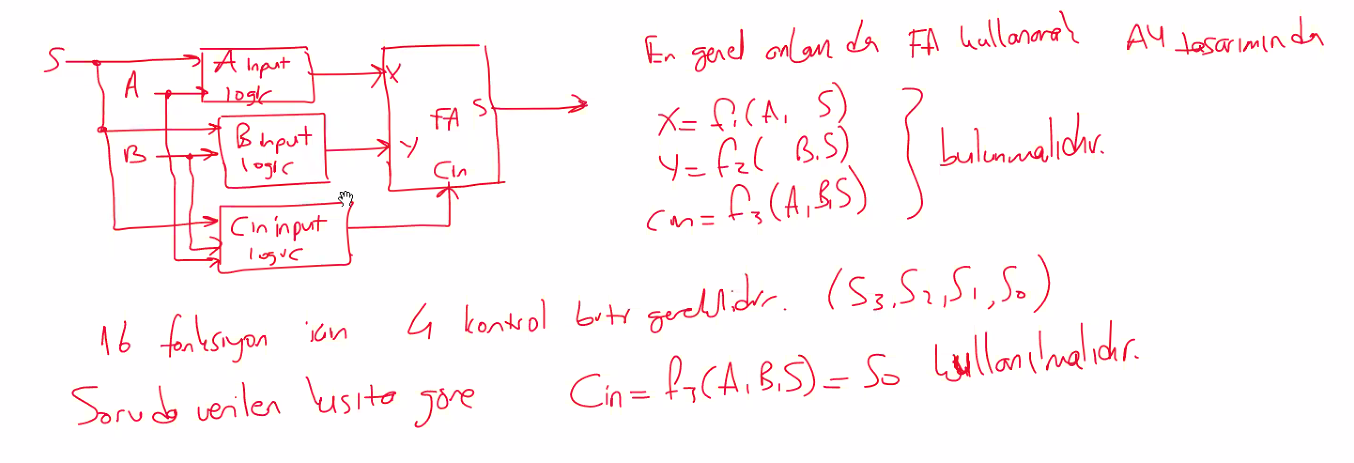 S
A
A input
logic
B
B input
logic
Cin input
logic
X
Y
FA
S
Cin
En genel anlamda FA kullanarak AU tasarımında
X = f₁(A, S)
Y = f₂( B,S)
Cin = f₃(A,B,S)
bulunmalıdır.
16 fonksiyon için 4 kontrol biti gereklidir. (S₃,S₂,S₁,S₀)
Soruda verilen kısıta göre Cin = f₃(A,B,S) = S₀ kullanılmalıdır.